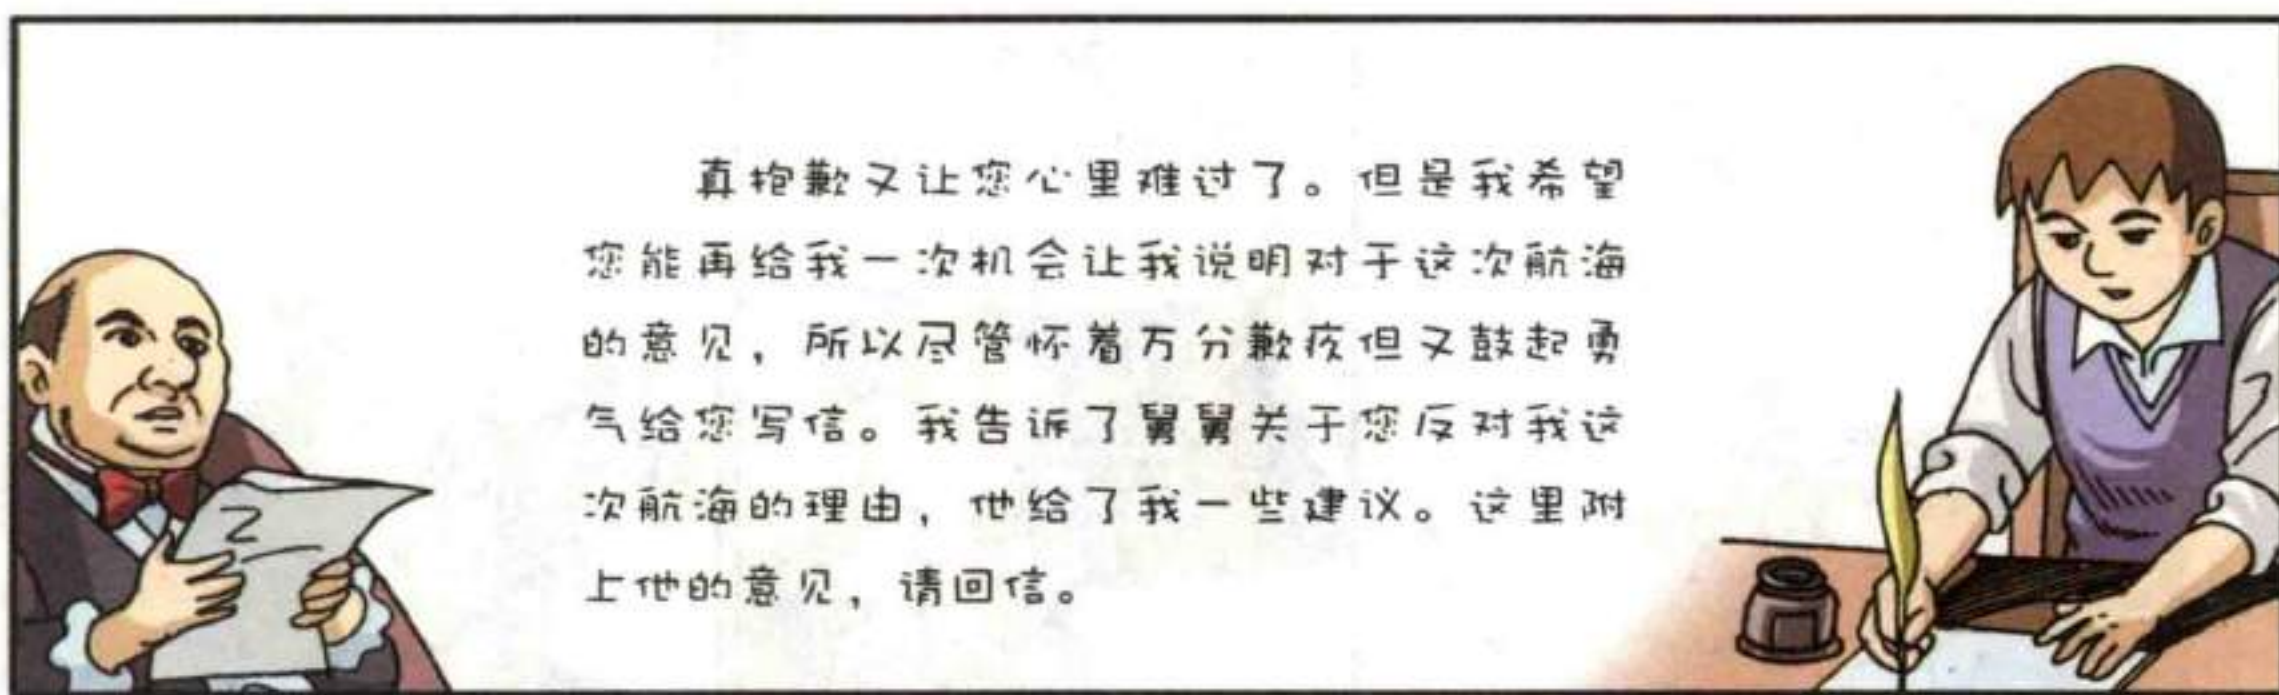 真抱歉又让您心里难过了。但是我希望
您能再给我一次机会让我说明对于这次航海
的意见，所以尽管怀着万分歉疚但又鼓起勇
气给您写信。我告诉了舅舅关于您反对我这
次航海的理由，他给了我一些建议。这里附
上他的意见，请回信。